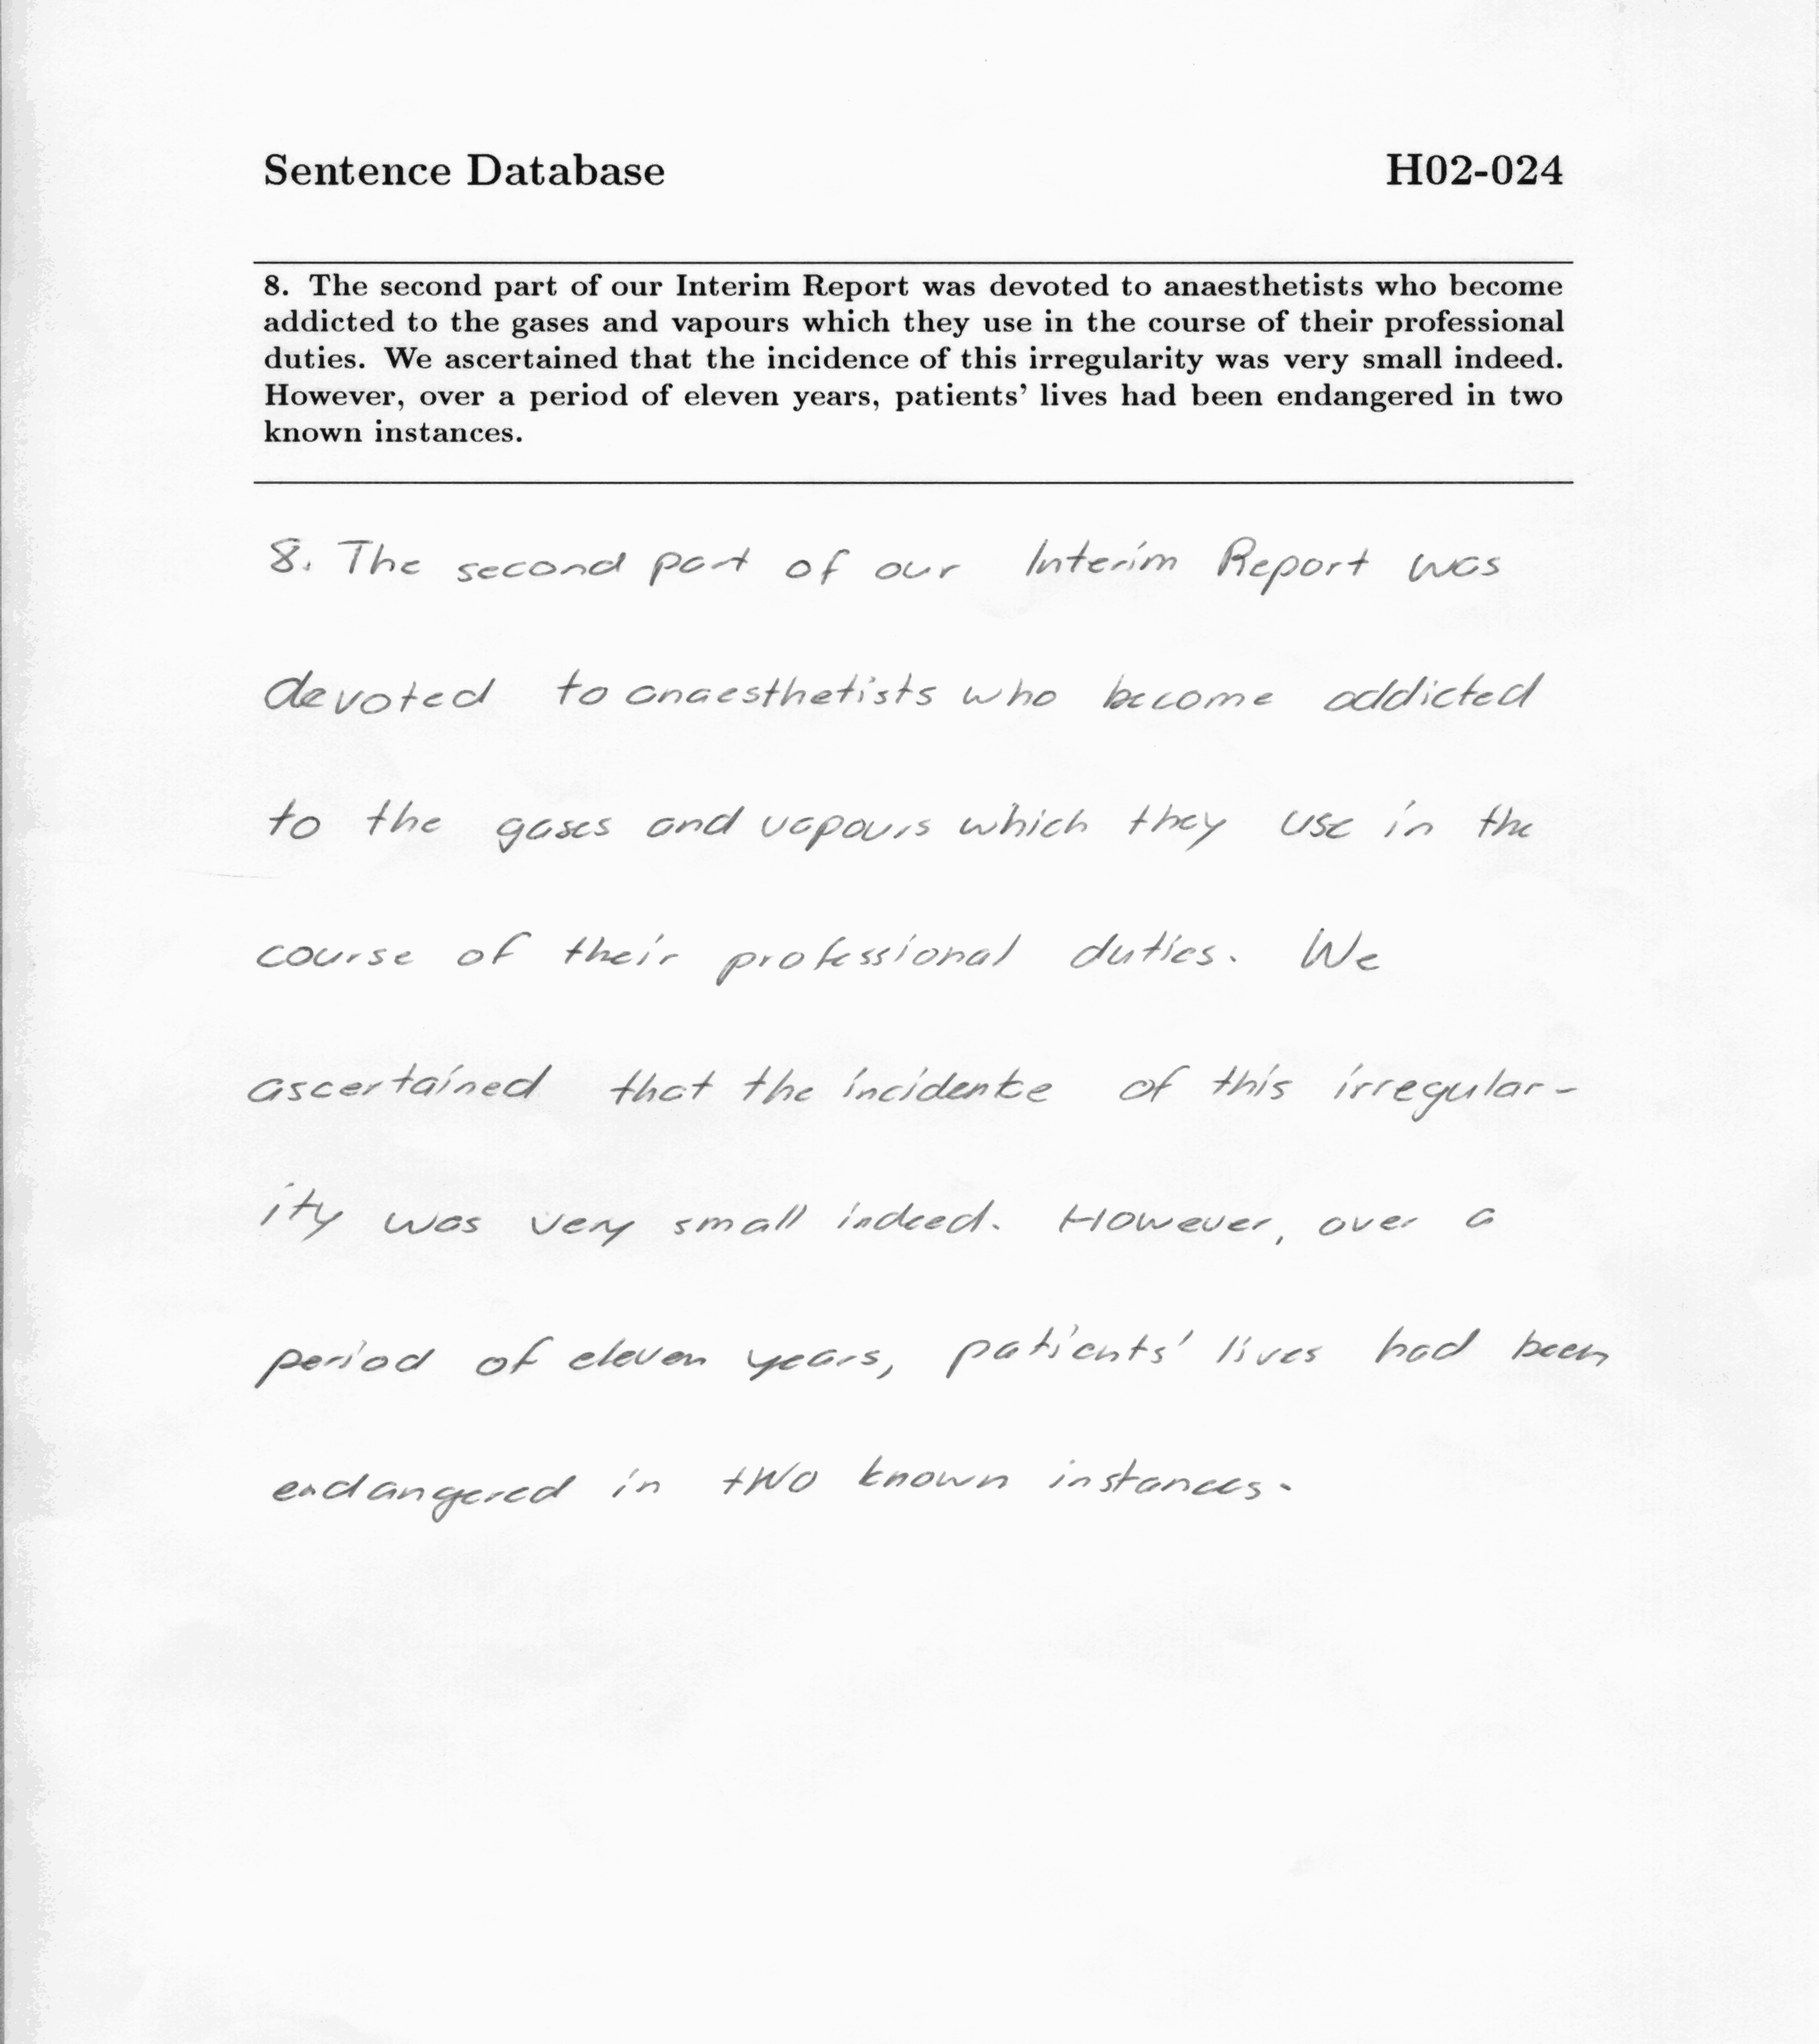 Sentence Database H02-024
8. The second part of our Interim Report was devoted to anaesthetists who become
addicted to the gases and vapours which they use in the course of their professional
duties. We ascertained that the incidence of this irregularity was very small indeed.
However, over a period of eleven years, patients' lives had been endangered in two
known instances.
8. The second part of our Interim Report was
devoted to anaesthetists who become addicted
to the gases and vapours which they use in the
course of their professional duties. We
ascertained that the incidence of this irregular-
ity was very small indeed. However, over a
period of eleven years, patients' lives had been
endangered in two known instances.